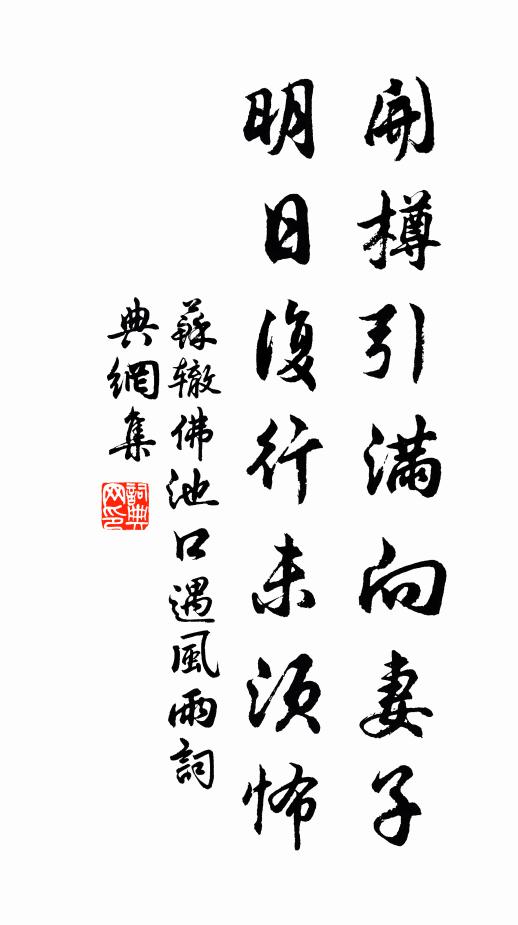 開樽引滿向妻子
明日復行未須怖
蘇轍佛池口遇風雨詞
典網集
詞典网印